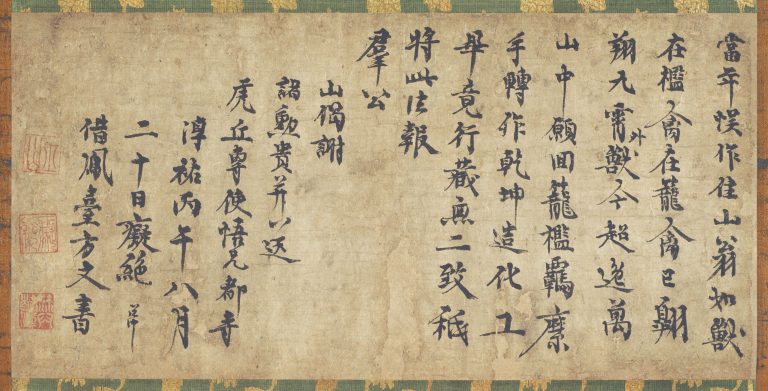 當年悮作住山翁如獸
在檻禽在籠禽已翱
翔九霄外獸今超逸萬
山中願回籠檻羈縻
手轉作乾坤造化工
畢竟行藏無二致秖
將此法報
羣公
山偈謝
諸勳貴并以送
虎丘專使悟兄都寺
淳祐丙午八月
二十日癡絕
借鳳臺方丈書